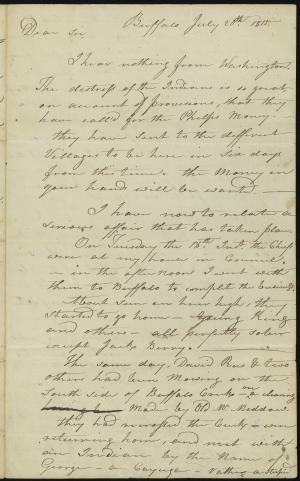 Buffalo July 20th. 1815.
Dear Sir
I hear nothing from Washington.
The distress of the Indians is so great,
on account of provisions, that they
have call'd for the Phelps Money.
they have sent to the different
Villages to be here in Six days
from this time. the Money in
your hand will be wanted. —
I have now to relate a
serious affair that has taken place
On Tuesday the 18th Inst. the Chiefs
were at my house in Council.
— in the afternoon I went with
them to Buffalo to complete the business
About Sun an hour high, they
started to go home — Young King
and others — all perfectly sober
except Jack Berry.
The same day, David Rees & two
others had been Mowing on the
South side of Buffalo Creek on a clearing
Made by Old Mr.
they had recrossed the Creek — were
returning home, and met with
an Indian by the Name of
George — a Cayuga — rather a stupid